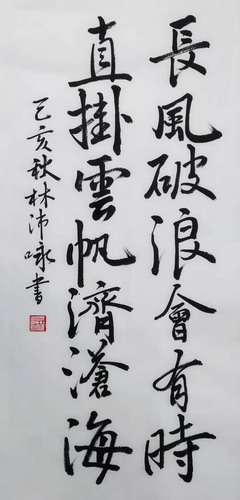 長風破浪會有時
直掛雲帆濟滄海
己亥秋林沛咏書